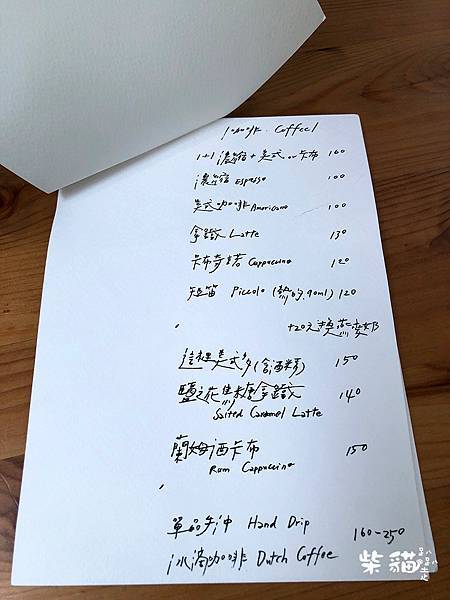 咖啡 . Coffee
1+1 濃縮 + 美式 or 卡布 160
濃縮 Espresso 100
美式咖啡 Americano 100
拿鐵 Latte 130
卡布奇諾 Cappuccino 120
短笛 Piccolo (熱的, 90ml) 120
+20元換燕麥奶
這裡美式多 (含酒精) 150
鹽之花焦糖拿鐵 140
Salted Caramel Latte
蘭姆酒卡布 150
Rum Cappuccino
單品手沖 Hand Drip
160-250
冰滴咖啡 Dutch Coffee
柴貓